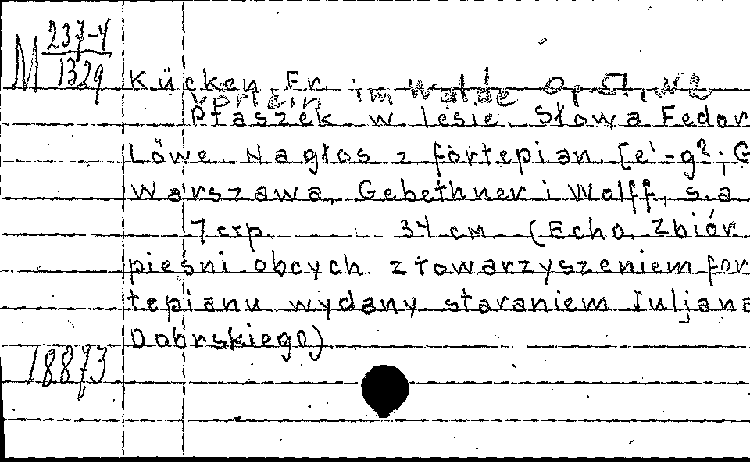 M 237-4
1329
Kücken Fr im Walde Op. 51, N2
Vöglein
Ptaszek w lesie. Słowa Fedor
Löwe Na głos z fortepian [e'-g²; G
Warszawa, Gebethner i Wolff, s.a
7 стр. 34 см (Echo, Zbiór
pieśni obcych z towarzyszeniem for
tepianu wydany staraniem Iuljana
Dobrskiego)
18873